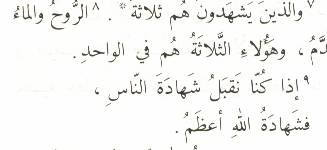 ٧ والَّذينَ يَشهَدونَ هُم ثَلاثَةٌ * . ٨ الرُّوحُ والماءُ
دَّمُ ، وهَؤُلاءِ الثَّلاثَةُ هُم في الواحدِ.
٩ إذا كُنَّا نَقبَلُ شَهادَةَ النَّاسِ ،
فشَهادَةُ اللهِ أعظَمُ.